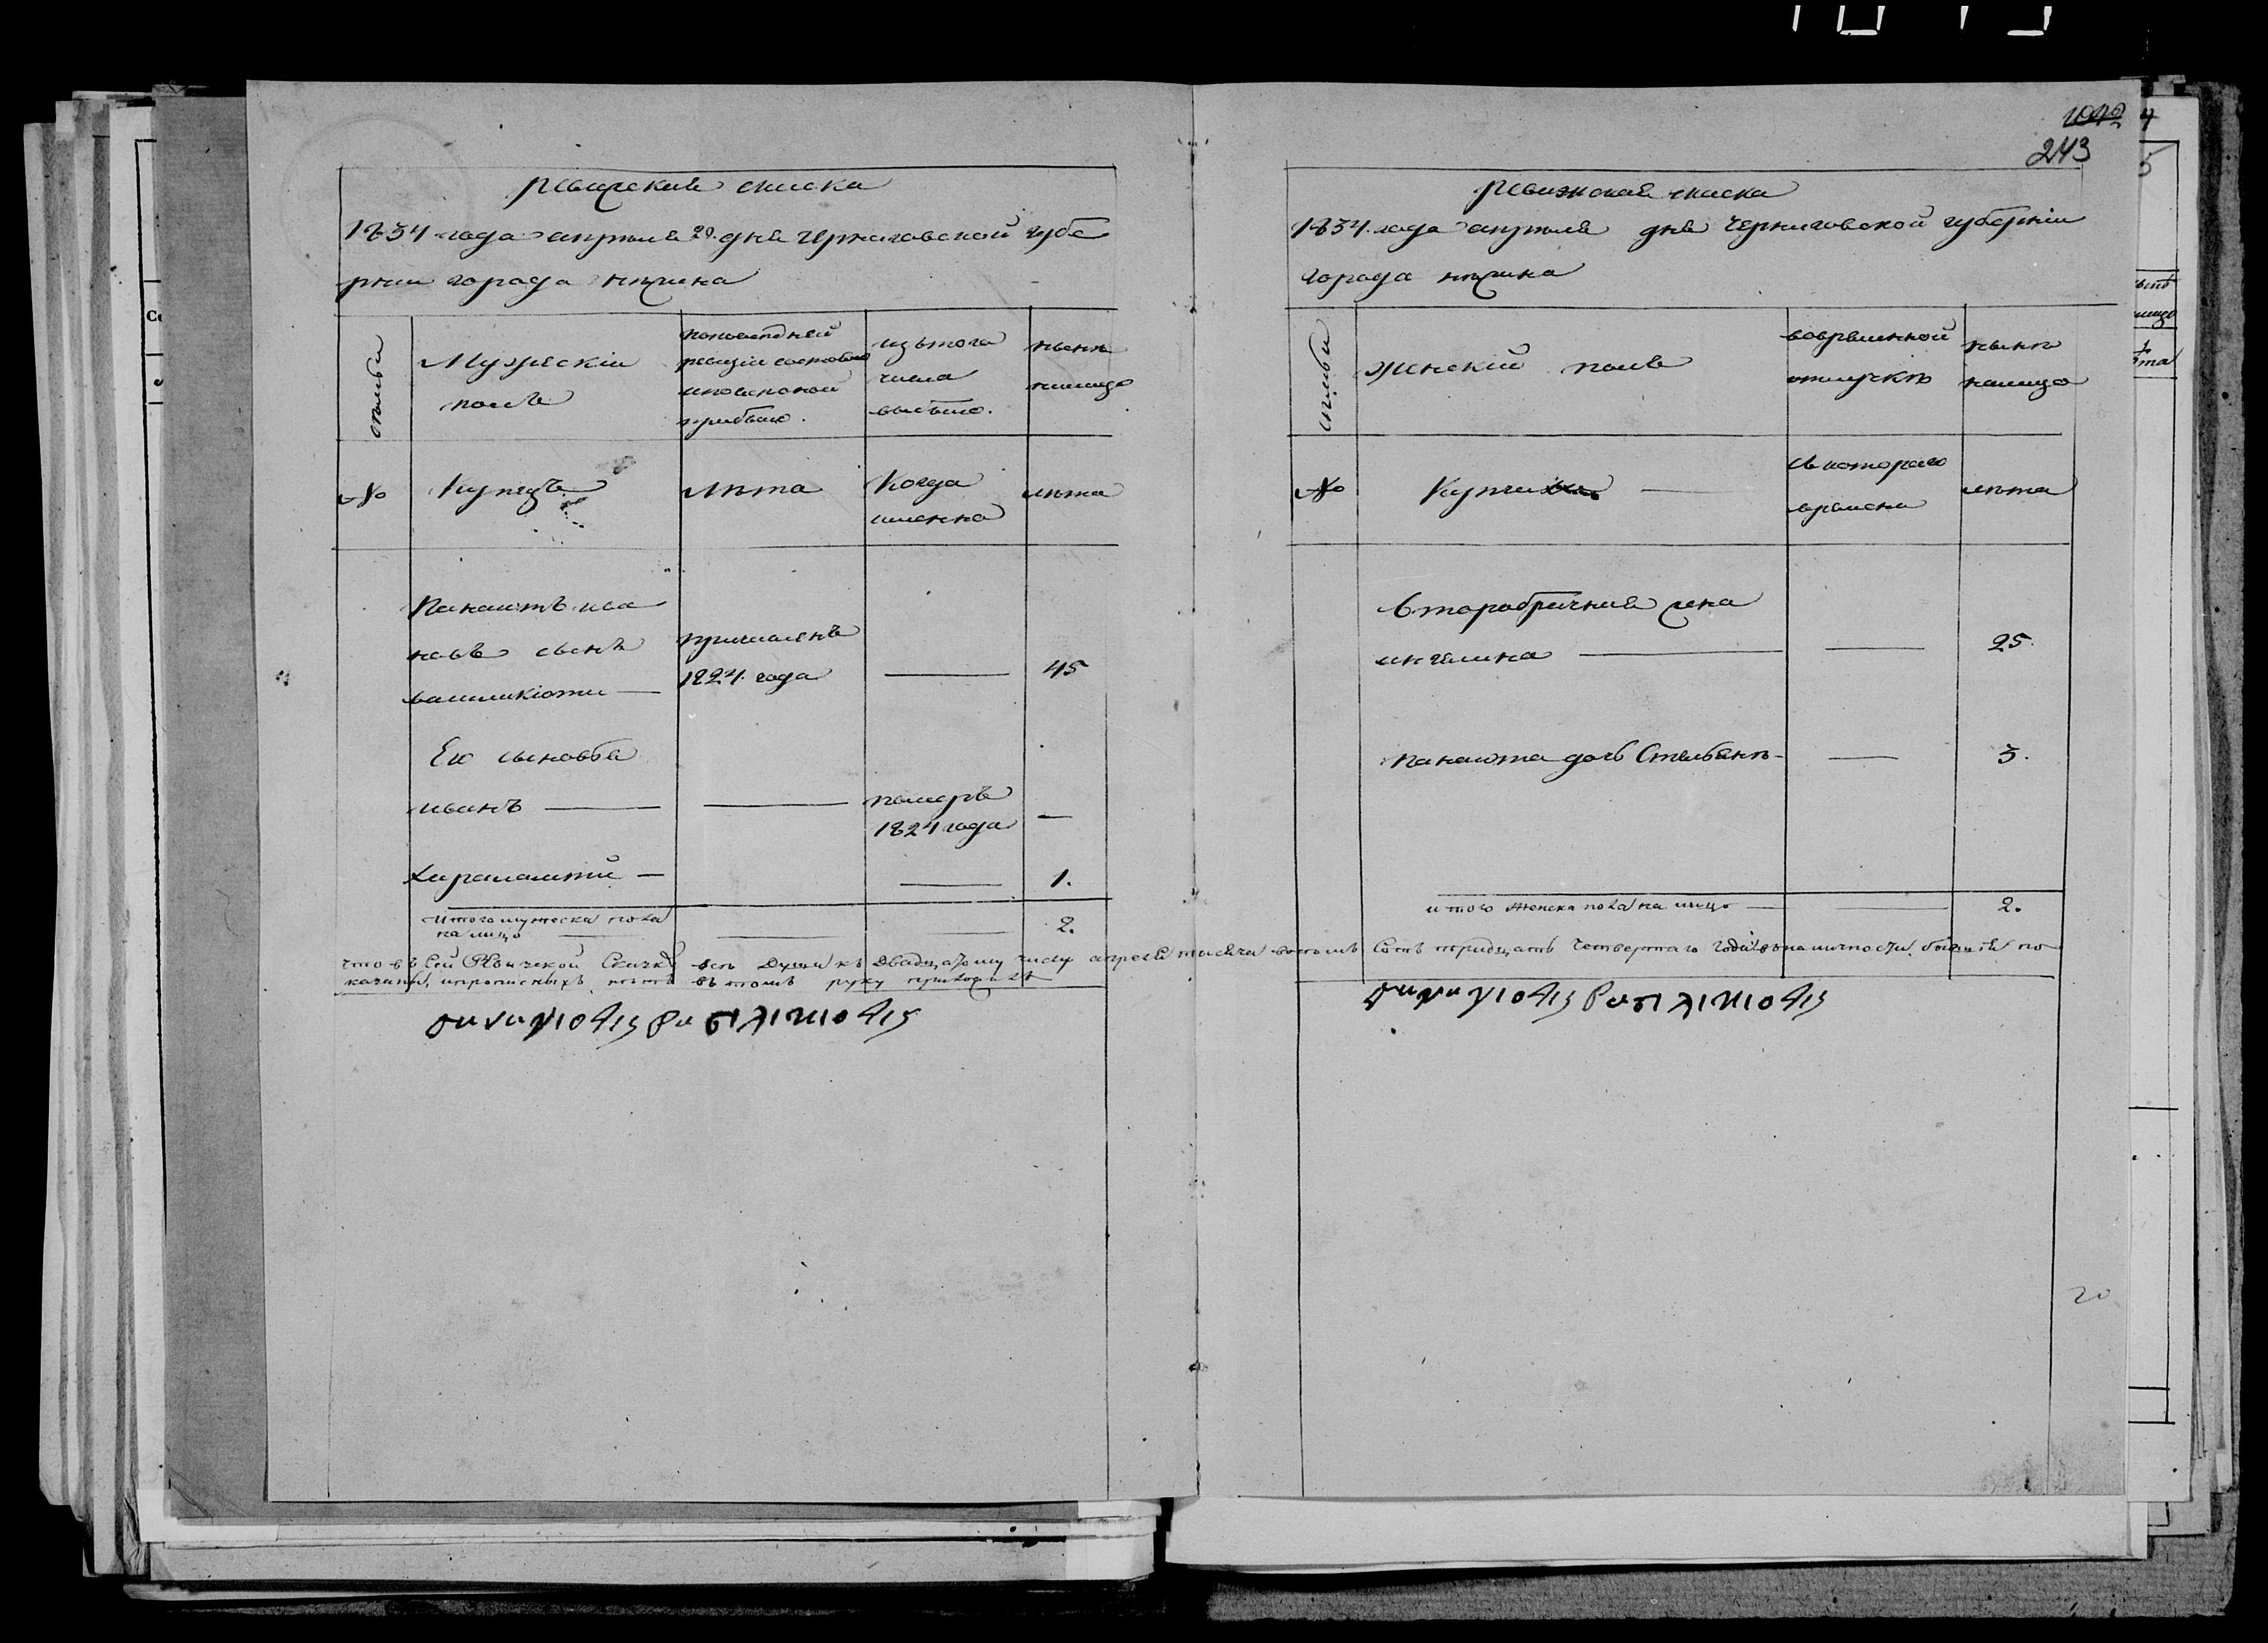 ревижская скаска
1834 года апреля 20. дня Черниговской губе
рнии города нежина
столбы
Мужескій
полъ
попоследней
ревизіи состояло
ипослеоной
прибыло.
изътого
числа
выбыло.
нынѣ
налицо
№
Купецъ
лѣта
Когда
именно
лѣта
Панаіотъ ива
новъ сынъ
василикіоти —
причисленъ
1824. года
—
45
Его сыновья
иванъ — —
померъ
1824 года
—
Харалампій — — 1.
итого мужеска пола
на лицо — — — 2.
что въ сей Ревижской Скаскѣ всѣ души къ двадцатому числу апреля тысяча восемь сотъ тридцать четвертаго года въ наличности бывшія по
казаны, ипрописныхъ нѣтъ въ томъ руку
1042
243
ревижская скаска
1834. года апреля дня Черниговской губерніи
города нежина
столбы
женскій полъ
вовременной
отлучкѣ
нынѣ
налицо
№
Купчиха —
съкотораго
времени
лѣта
второбрачная жена
ангелина — — 25.
панаіота дочь — 3.
итого женска пола на лицо — — 2.
20